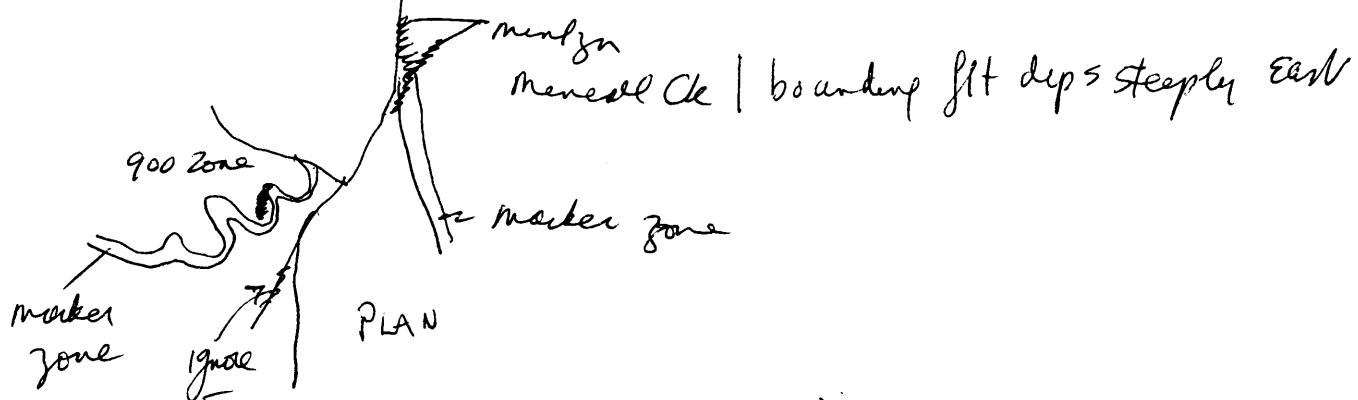 minlzn
Mineral Ck | bounding flt dips steeply East
900 Zone
marker zone
marker
zone
PLAN
Ignore